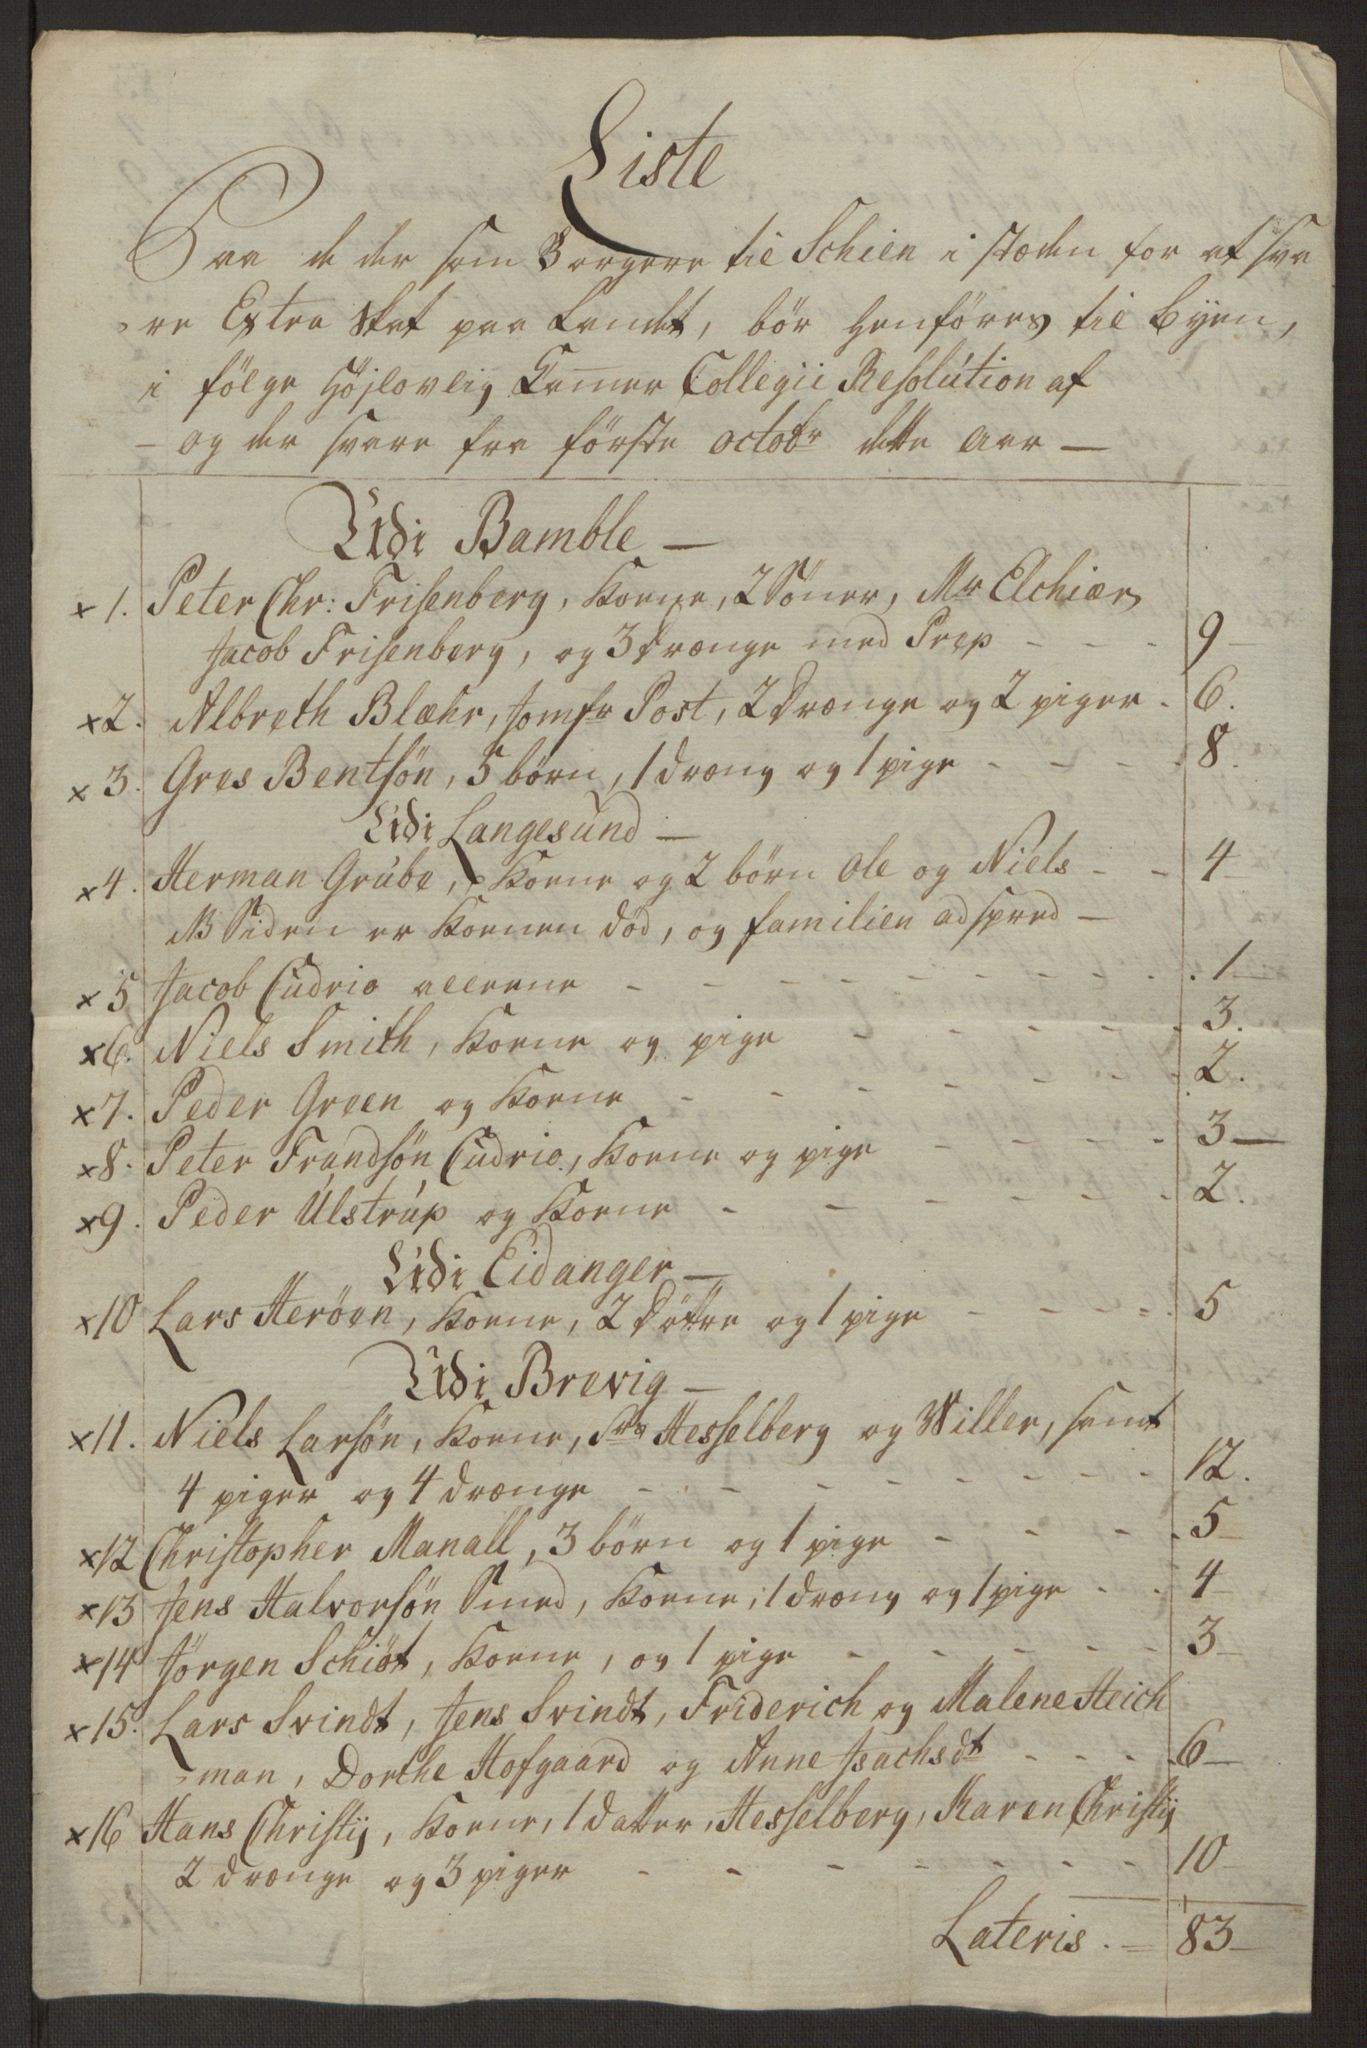 Liste
Paa de der som Borgere til Schien i stæden for at sva
re Extra Skat paa Landet, bör henföres til Byen,
i fölge Höjlovlig Kamer Collegii Resolution af
– og der svare fra förste octobr dette Aar –
Udi Bamble –
x 1. Peter Chr: Frisenberg, Konne, 2 Sönner, Mr Elchiær,
Jacob Frisenberg, og 3 drænge med Prep - - - 9 –
x 2. Albreth Blæhr, Jomfr Post, 2 Drænge og 2 piger - 6.
x 3. Gres Bentsön, 5 börn, 1 dræng og 1 pige - - - - 8.
Udi Langesund –
x 4. Herman Grube, Konne og 2 börn Ole og Niels - - 4 –
NB Siden er Konnen död, og familien adspred –
x 5 Jacob Cudrio allene - - - - - - - - - 1 –
x 6. Niels Smith, Konne og pige - - - - - 3.
x 7. Peder Green og Konne - - - - - - - 2.
x 8. Peter Frandsön Cudrio, Konne og pige - - - - - 3 –
x 9. Peder Ulstrup og Konne - - - - - - 2.
Udi Eidanger –
x 10 Lars Heröen, Konne, 2 Döttre og 1 pige - - - - - 5
Udi Brevig –
x 11. Niels Larsön, Konne, Srs Hesselberg og Willer, samt
4 piger og 4 drænge - - - - - - - - 12.
x 12 Christopher Manall, 3 börn og 1 pige - - - - - 5 –
x 13 Jens Halvorsön Smed, Konne, 1 dræng og 1 pige - - 4 –
x 14 Jörgen Schiöt, Konne, og 1 pige - - - - - - 3 –
x 15. Lars Svindt, Jens Svindt, Friderich og Malene Heich
man, Dorthe Hofgaard og Anne Isachsdt - - - - 6 –
x 16 Hans Christij, Konne, 1 datter, Hesselberg, Karen Christij
2 drænge og 3 piger - - - - - - - 10
Lateris . = 83 –